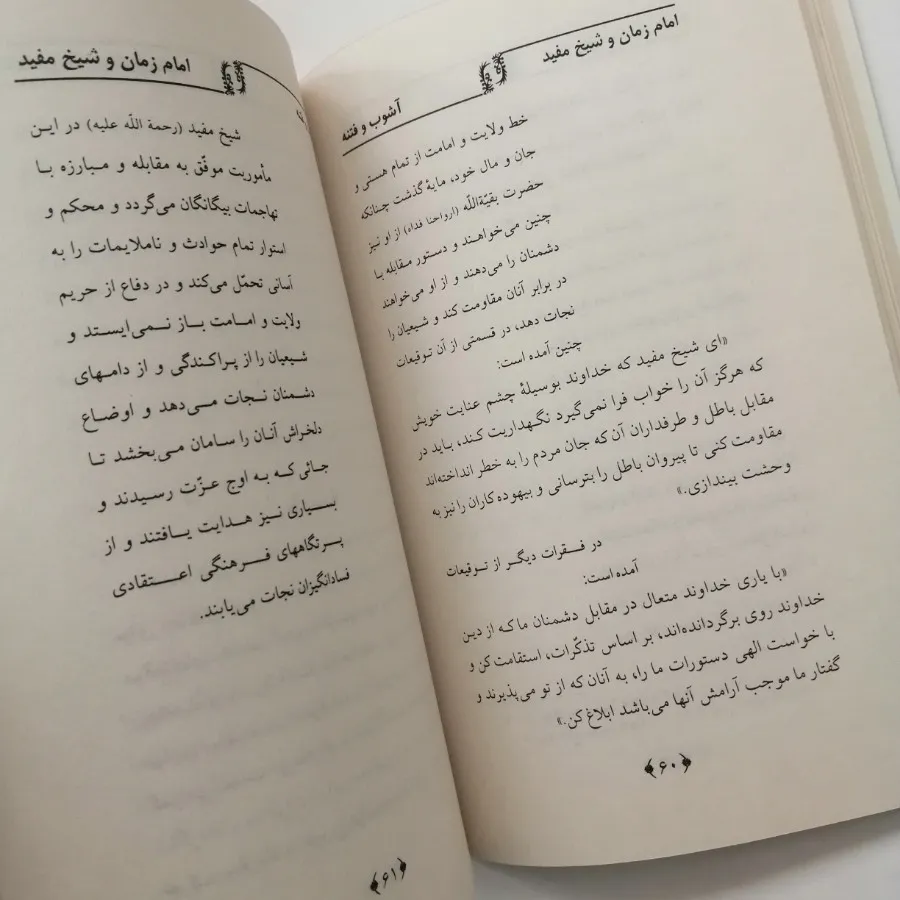 امام زمان و شیخ مفید
آشوب و فتنه
خط ولایت و امامت از تمام هستی و
جان و مال خود، مایهٔ گذشت چنانکه
حضرت بقیّة‌اللّه (ارواحنا فداه) از او نیز
چنین می‌خواهند و دستور مقابله با
دشمنان را می‌دهند و از او می‌خواهند
در برابر آنان مقاومت کند و شیعیان را
نجات دهد، در قسمتی از آن توقیعات
چنین آمده است:
«ای شیخ مفید که خداوند بوسیلهٔ چشم عنایت خویش
که هرگز آن را خواب فرا نمی‌گیرد نگهداریت کند، باید در
مقابل باطل و طرفداران آن که جان مردم را به خطر انداخته‌اند
مقاومت کنی تا پیروان باطل را بترسانی و بیهوده کاران را نیز به
وحشت بیندازی.»
در فقرات دیگر از توقیعات
آمده است:
«با یاری خداوند متعال در مقابل دشمنان ما که از دین
خداوند روی برگردانده‌اند، بر اساس تذکّرات، استقامت کن و
با خواست الهی دستورات ما را، به آنان که از تو می‌پذیرند و
گفتار ما موجب آرامش آنها می‌باشد ابلاغ کن.»
﴿۶۰﴾
امام زمان و شیخ مفید
شیخ مفید (رحمة اللّه علیه) در این
مأموریت موفّق به مقابله و مبارزه با
تهاجمات بیگانگان می‌گردد و محکم و
استوار تمام حوادث و ناملایمات را به
آسانی تحمّل می‌کند و در دفاع از حریم
ولایت و امامت باز نمی‌ایستد و
شیعیان را از پراکندگی و از دامهای
دشمنان نجات می‌دهد و اوضاع
دلخراش آنان را سامان می‌بخشد تا
جائی که به اوج عزّت رسیدند و
بسیاری نیز هدایت یافتند و از
پرتگاههای فرهنگی اعتقادی
فسادانگیزان نجات می‌یابند.
﴿۶۱﴾